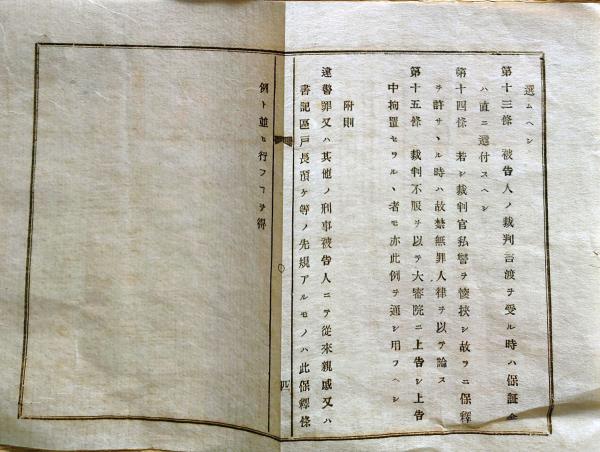 選ムヘシ
第十三條 被告人ノ裁判言渡ヲ受ル時ハ保証金
ハ直ニ還付スヘシ
第十四條 若シ裁判官私讐ヲ懷挾シ故ラニ保釋
ヲ許サヽル時ハ故禁無罪人律ヲ以テ論ス
第十五條 裁判不服ヲ以テ大審院ニ上告シ上告
中拘置セラルヽ者モ亦此例ヲ通シ用フヘシ
附則
違警罪又ハ其他ノ刑事被告人ニテ從來親戚又ハ
書記區戸長預ケ等ノ先規アルモノハ此保釋條
四
例ト並ヒ行フヿヲ得